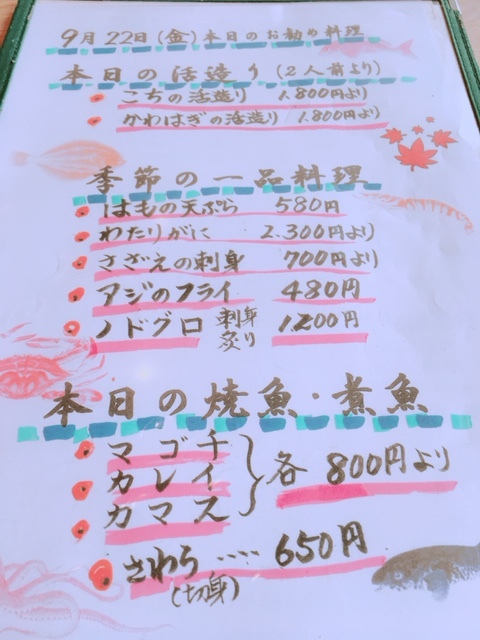 9月22日(金)本日のお勧め料理
本日の活造り(2人前より)
こちの活造り 1.800円より
かわはぎの活造り 1.800円より
季節の一品料理
はもの天ぷら 580円
わたりがに 2.300円より
さざえの刺身 700円より
アジのフライ 480円
ノドグロ 刺身 炙り 1200円
本日の焼魚・煮魚
マゴチ
カレイ
カマス
各 800円より
さわら ‥‥ 650円
(切身)